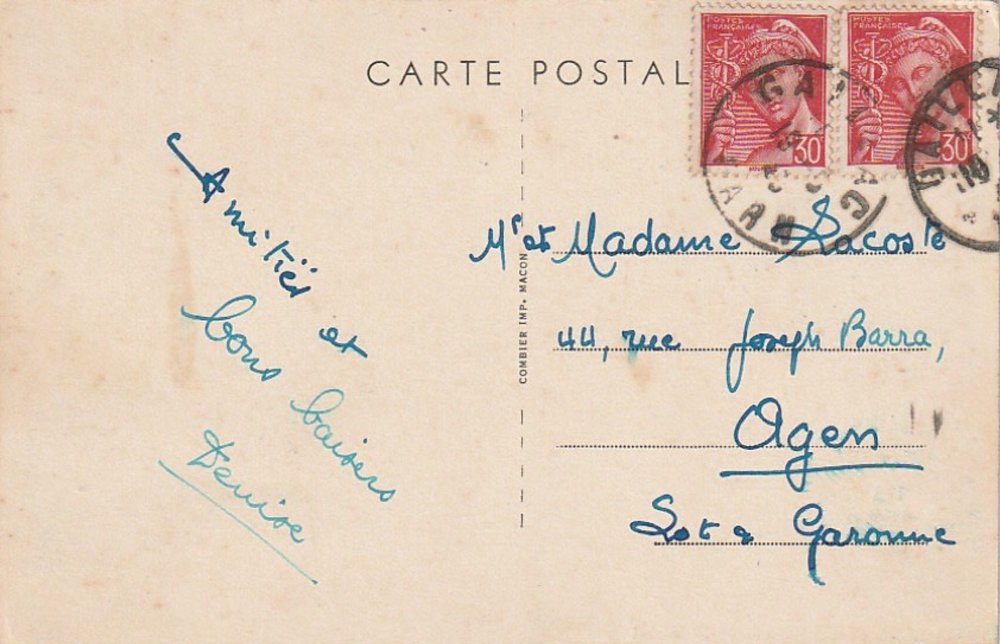 CARTE POSTAL
POSTES
FRANÇAISES
30
POSTES
FRANÇAISES
30
GAILLAC
TARN
Amitiés et
bons baisers
Denise
COMBIER IMP. MACON
Mr et Madame Lacoste
44, rue Joseph Barra,
Agen
Lot & Garonne